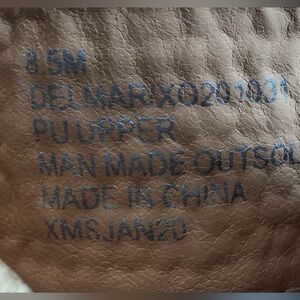 8.5M
DELMAR/XO201031
PU UPPER
MAN MADE OUTSOL
MADE IN CHINA
XMSJAN20